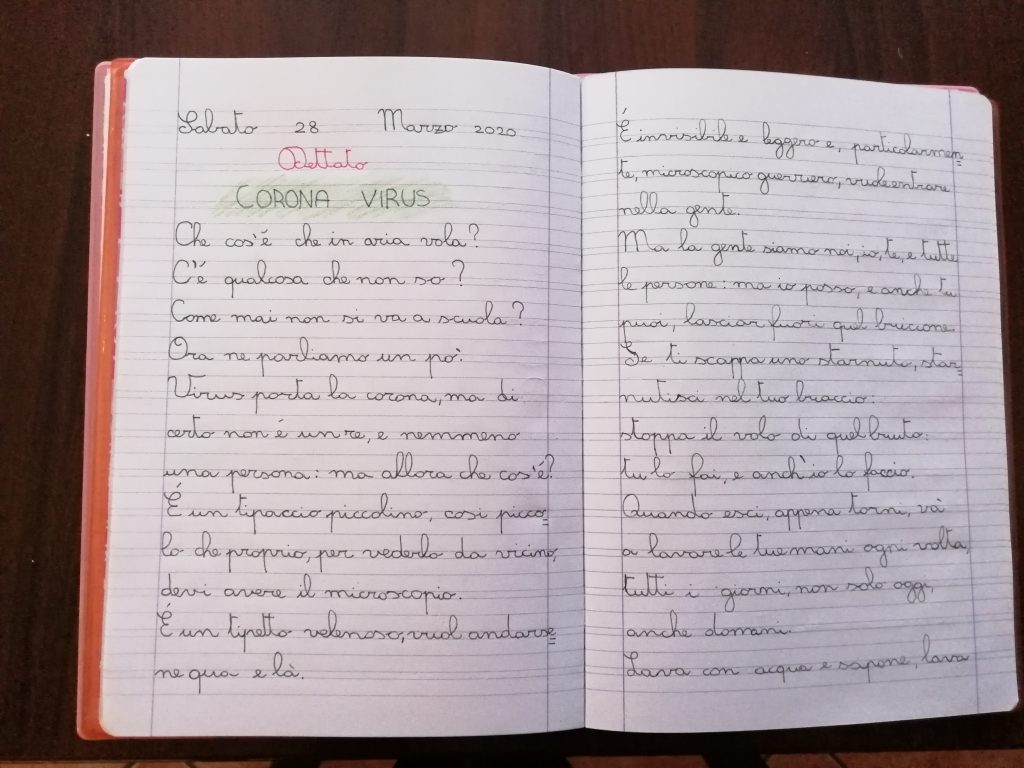 Sabato 28 Marzo 2020
Dettato
CORONA VIRUS
Che cos'é che in aria vola?
C'é qualcosa che non so?
Come mai non si va a scuola?
Ora ne parliamo un pò:
Virus porta la corona, ma di
certo non é un re, e nemmeno
una persona: ma allora che cos'é?
É un tipaccio piccolino, cosi picco=
lo che proprio, per vederlo da vicino,
devi avere il microscopio.
É un tipetto velenoso, vuol andarse=
ne qua e là.
É invisibile e leggero e, particolarmen=
te, microscopico guerriero, vude entrare
nella gente.
Ma la gente siamo noi, io, te, e tutte
le persone: ma io posso, e anche tu
puoi, lasciar fuori quel briccone
Se ti scappa uno starnuto, star=
nutisci nel tuo braccio:
stoppa il volo di quel bruto:
tu lo fai, e anch'io lo faccio.
Quando esci, appena torni, và
a lavare le tue mani ogni volta,
tutti i giorni, non solo oggi,
anche domani.
Lava con acqua e sapone, lava